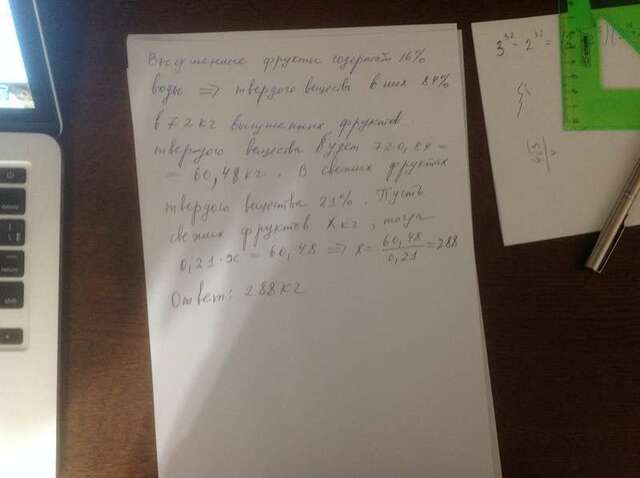 Высушенные фрукты содержат 16%
воды ⇒ твердого вещества в них 84%
в 72 кг высушенных фруктов
твердого вещества будет 72·0,84 =
= 60,48 кг. В свежих фруктах
твердого вещества 21%. Пусть
свежих фруктов x кг, тогда
0,21·x = 60,48 ⇒ x = 60,48/0,21 = 288
Ответ: 288 кг
3³² - 2³² =